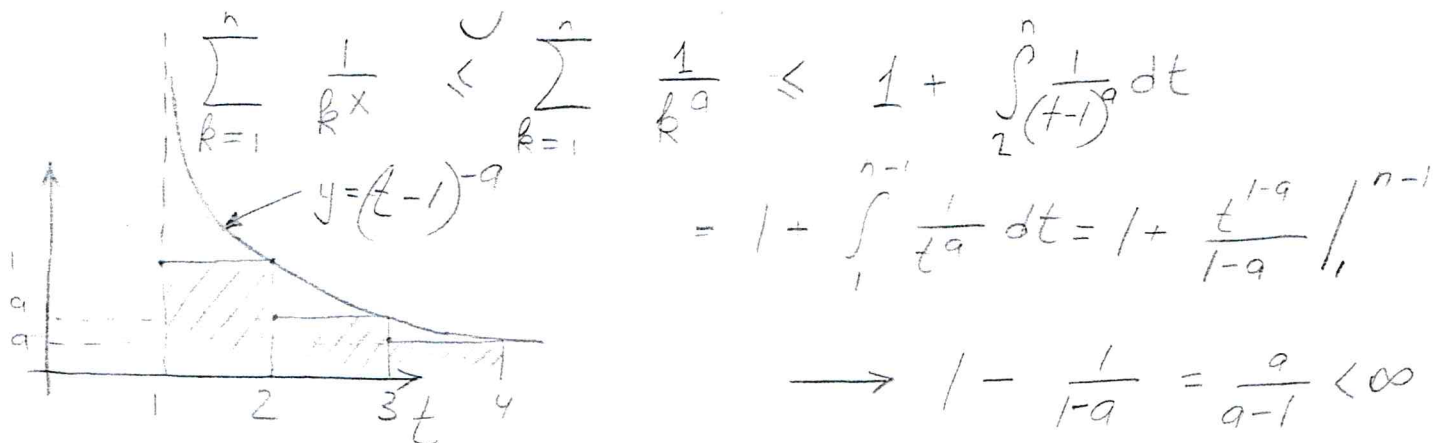 $\sum_{k=1}^{n} \frac{1}{k^x} \leq \sum_{k=1}^{n} \frac{1}{k^a} \leq 1 + \int_2^n \frac{1}{(t-1)^a} dt$
$y = (t-1)^{-a}$
$= 1 + \int_1^{n-1} \frac{1}{t^a} dt = 1 + \frac{t^{1-a}}{1-a} \Big|_1^{n-1}$
1
a
a
$\longrightarrow 1 - \frac{1}{1-a} = \frac{a}{a-1} < \infty$
1 2 3 t 4